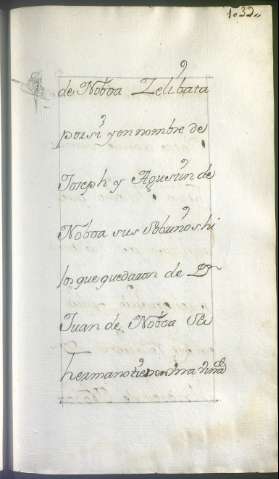 1032
de Nobôa Zelibata
por si y en nombre de
Joseph y Agustin de
Nobôa sus Sobrinos hi
jos que quedaron de Dn
Juan de Nobôa su
hermano tienen una